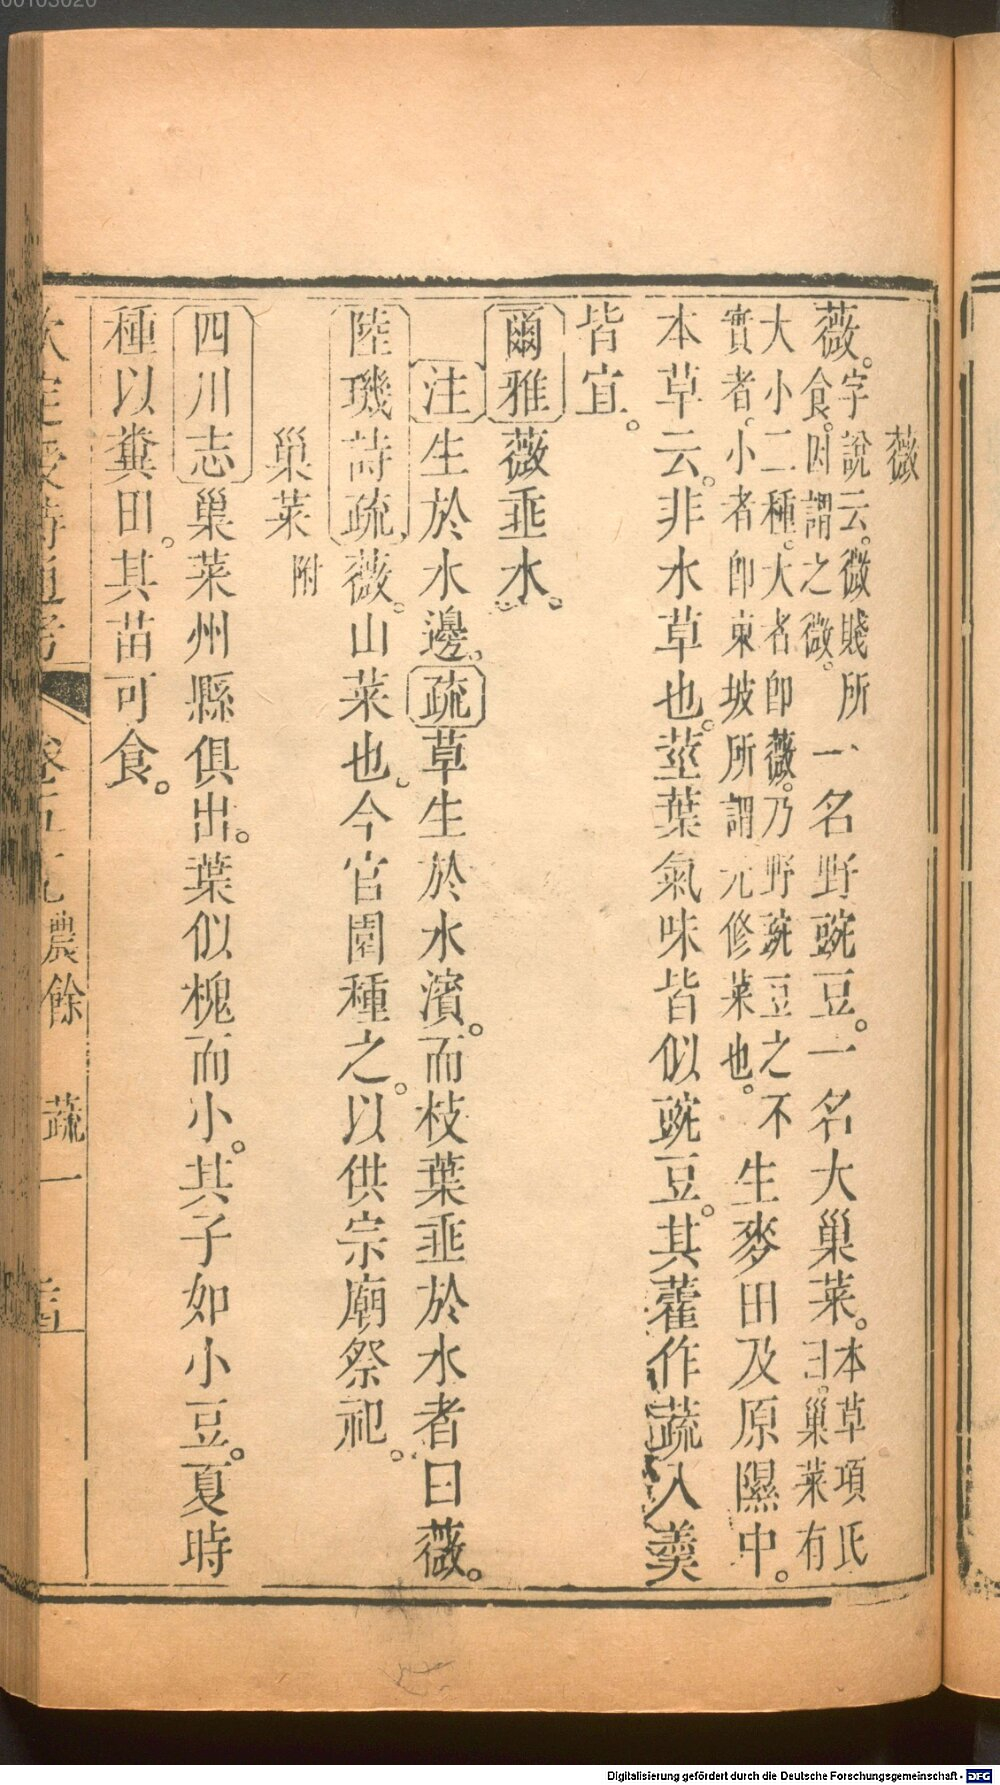 薇
薇。字說云。微賤所食。因謂之微。一名野豌豆。一名大巢菜。本草項氏曰。巢菜有
大小二種。大者卽薇。乃野豌豆之不實者。小者卽東坡所謂元修菜也。生麥田及原隰中。
本草云。非水草也。莖葉氣味皆似豌豆。其藿作蔬入羹
皆宜。
爾雅薇垂水。
注生於水邊。疏草生於水濱。而枝葉垂於水者曰薇。
陸璣詩疏薇。山菜也。今官園種之。以供宗廟祭祀。
巢菜附
四川志巢菜州縣俱出。葉似槐而小。其子如小豆。夏時
種以糞田。其苗可食。
農餘 蔬一
00103020
Digitalisierung gefördert durch die Deutsche Forschungsgemeinschaft - DFG